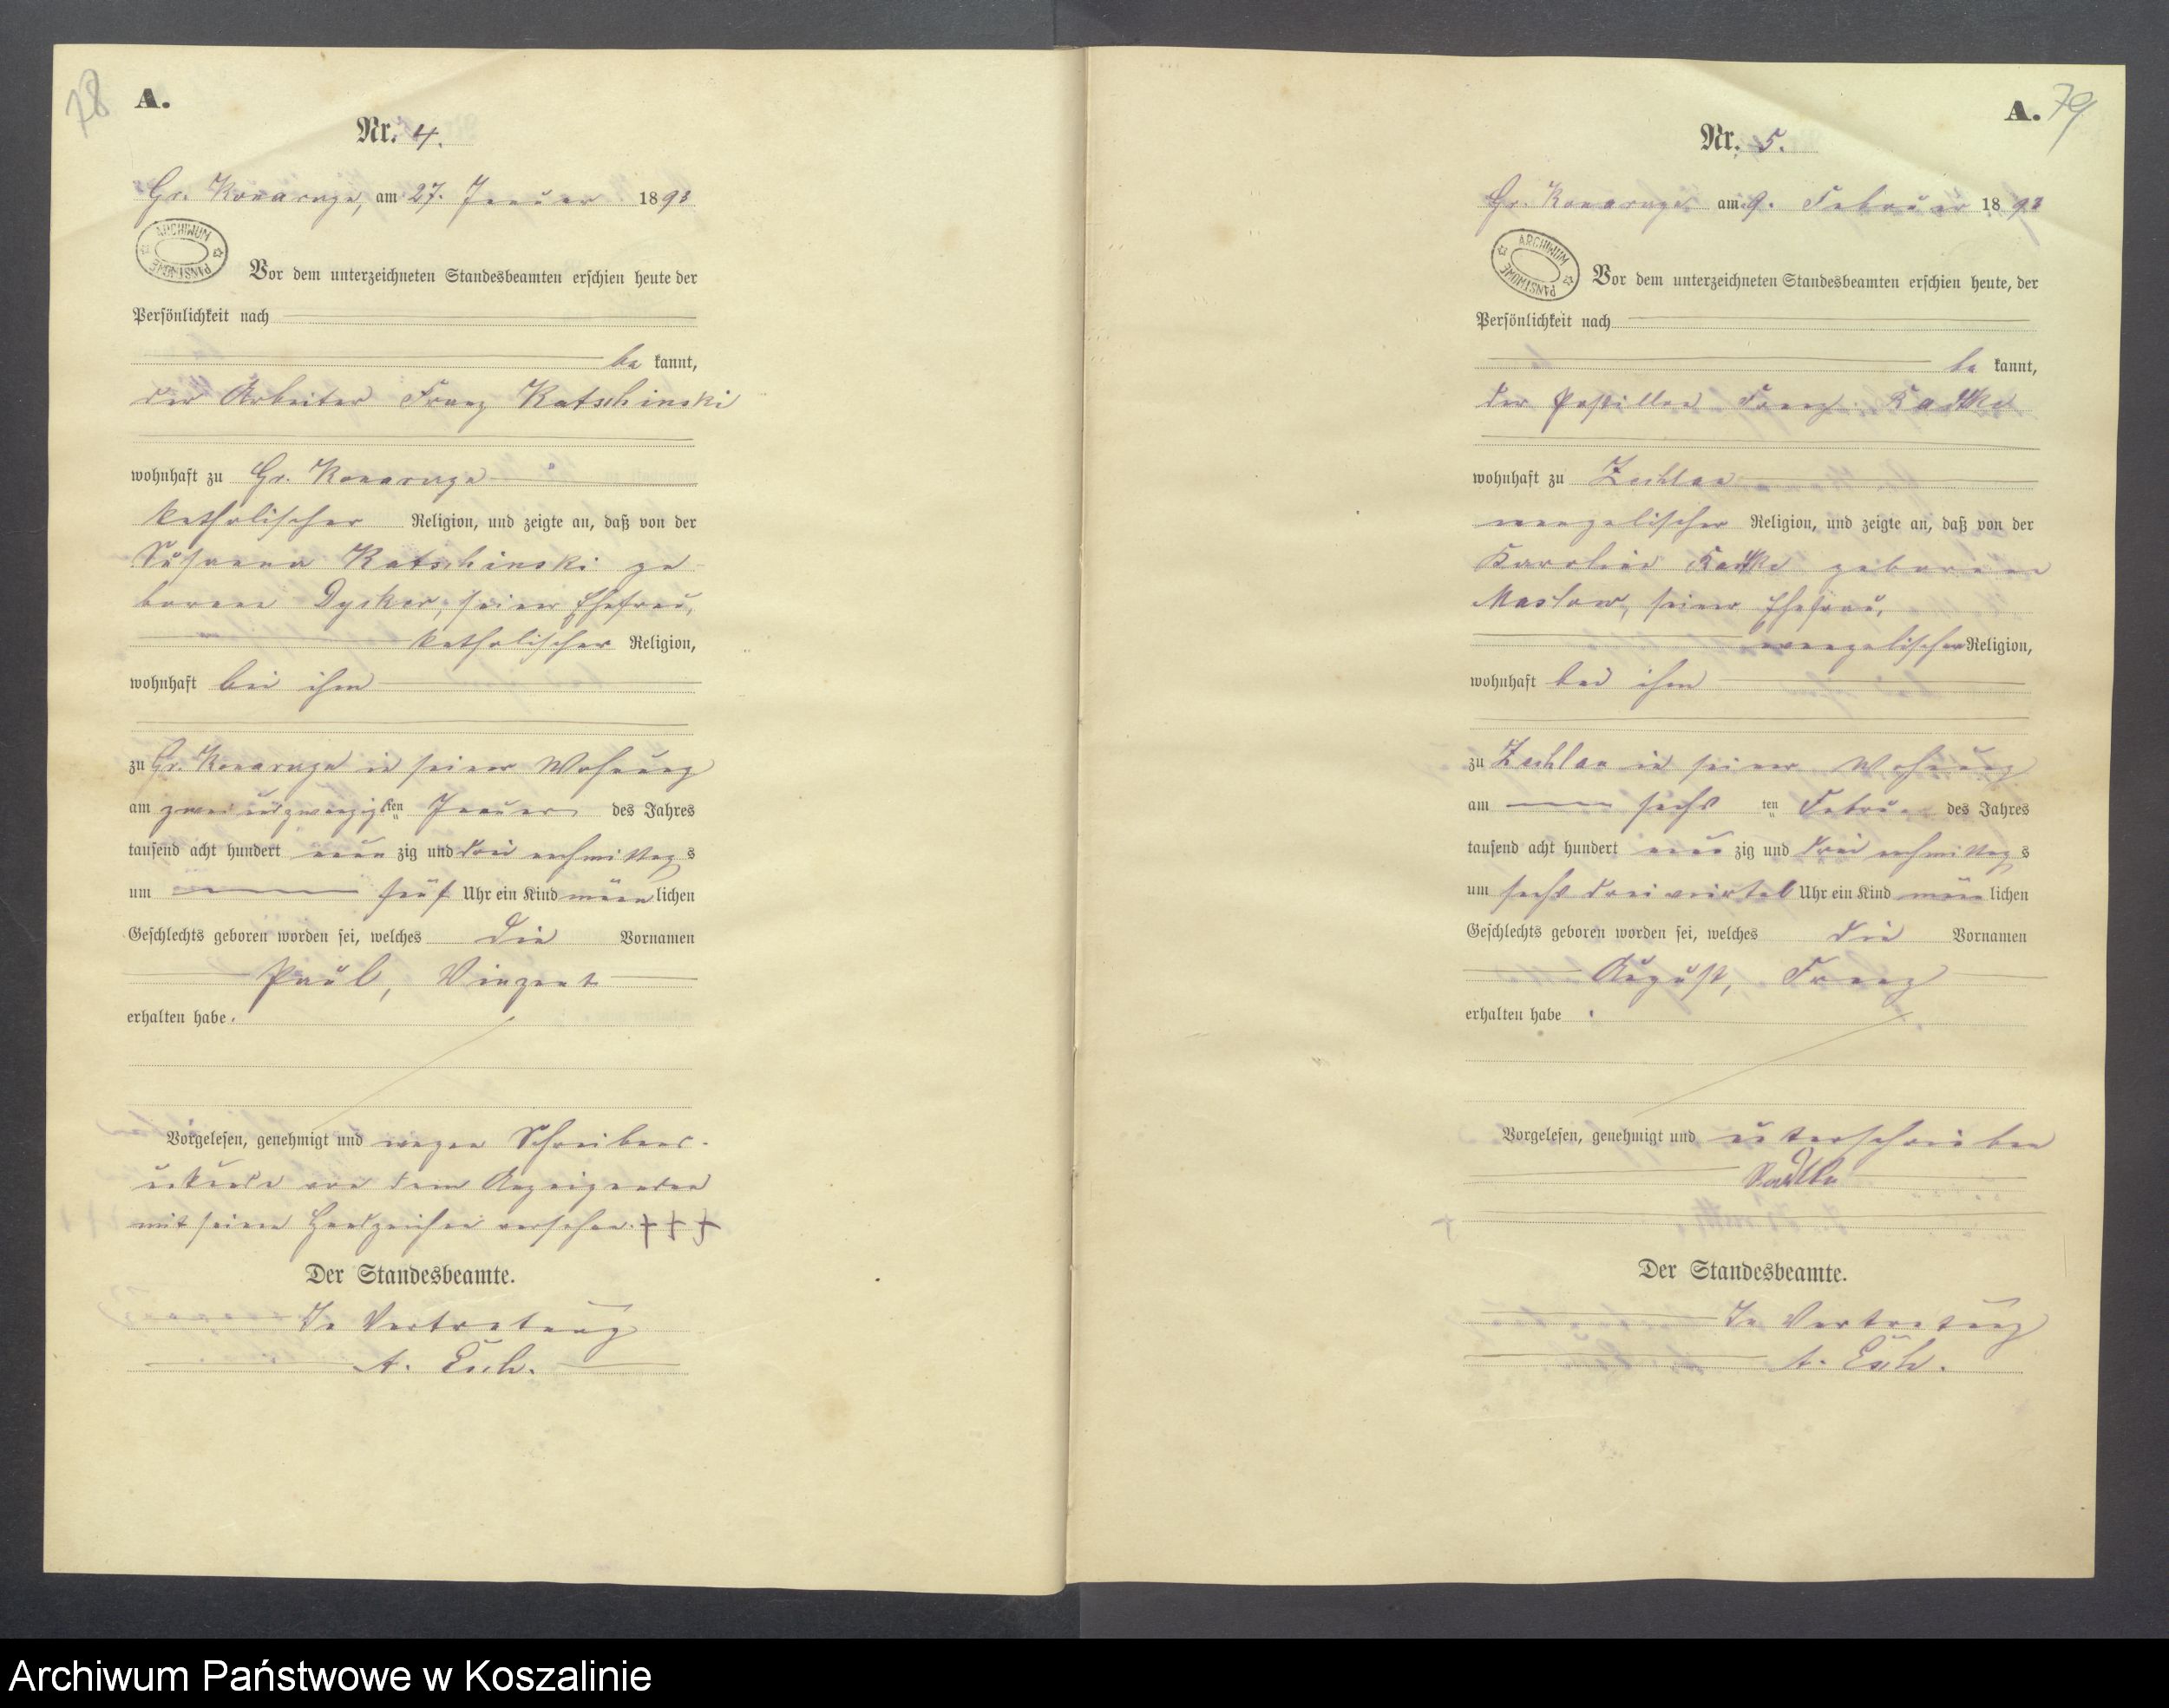 78
A.
Nr. 4.
Gr. Konarczyn, am 27. Januar 1893
ARCHIWUM PAŃSTWOWE
Vor dem unterzeichneten Standesbeamten erschien heute der
Persönlichkeit nach
be kannt,
der Arbeiter Franz Katschinski
wohnhaft zu Gr. Konarczyn
katholischer Religion, und zeigte an, daß von der
Susanna Katschinski ge
borene Dysker, seiner Ehefrau,
katholischer Religion,
wohnhaft bei ihm
zu Gr. Konarczyn in seiner Wohnung
am zwei und zwanzigsten Januar des Jahres
tausend acht hundert neun zig und drei nachmittag s
um fünf Uhr ein Kind männ lichen
Geschlechts geboren worden sei, welches die Vornamen
Paul, Vinzent
erhalten habe.
Vorgelesen, genehmigt und wegen Schreibens-
unkunde von dem Anzeigenden
mit seinem Handzeichen versehen. + + +
Der Standesbeamte.
In Vertretung
A. Esch.
A. 79
Nr. 5.
Gr. Konarczyn am 9. Februar 1893
ARCHIWUM PAŃSTWOWE
Vor dem unterzeichneten Standesbeamten erschien heute, der
Persönlichkeit nach
be kannt,
der Postillon Franz Radtke
wohnhaft zu Zechlau
evangelischer Religion, und zeigte an, daß von der
Karoline Radtke geborenen
Maslow, seiner Ehefrau,
evangelischer Religion,
wohnhaft bei ihm
zu Zechlau in seiner Wohnung
am sechs ten Februar des Jahres
tausend acht hundert neun zig und drei nachmittag s
um sechs dreiviertel Uhr ein Kind männ lichen
Geschlechts geboren worden sei, welches die Vornamen
August, Franz
erhalten habe.
Vorgelesen, genehmigt und unterschrieben
Radtke
Der Standesbeamte.
In Vertretung
A. Esch.
Archiwum Państwowe w Koszalinie